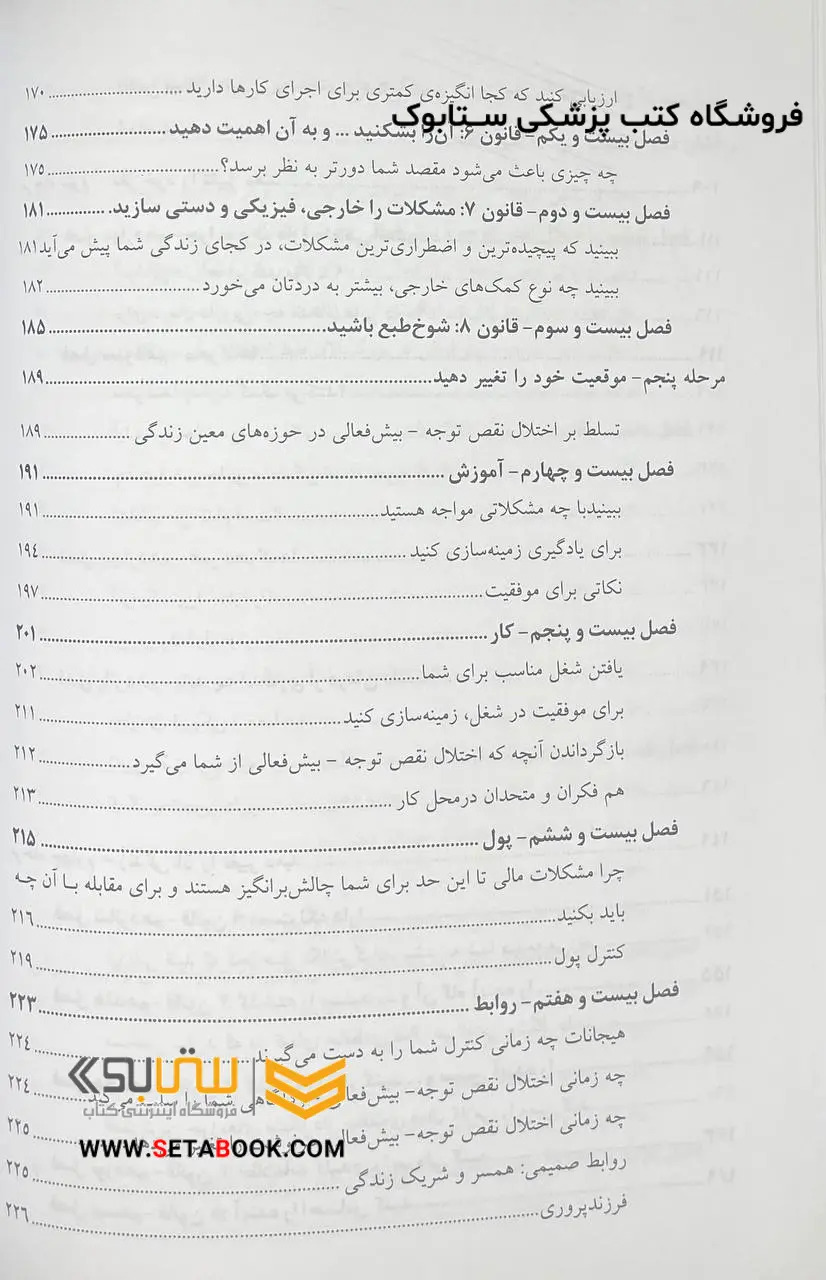 ارزیابی کنید که کجا انگیزه‌ی کمتری برای اجرای کارها دارید ............................ ۱۷۰
فروشگاه کتب پزشکی ستابوک
فصل بیست و یکم- قانون ۶: آن‌را بشکنید ... و به آن اهمیت دهید ..................... ۱۷۵
چه چیزی باعث می‌شود مقصد شما دورتر به نظر برسد؟ ..................................... ۱۷۵
فصل بیست و دوم- قانون ۷: مشکلات را خارجی، فیزیکی و دستی سازید. .............. ۱۸۱
ببینید که پیچیده‌ترین و اضطراری‌ترین مشکلات، در کجای زندگی شما پیش می‌آید ۱۸۱
ببینید چه نوع کمک‌های خارجی، بیشتر به دردتان می‌خورد ............................. ۱۸۲
فصل بیست و سوم- قانون ۸: شوخ‌طبع باشید. .................................................. ۱۸۵
مرحله پنجم- موقعیت خود را تغییر دهید ...................................................................... ۱۸۹
تسلط بر اختلال نقص توجه - بیش‌فعالی در حوزه‌های معین زندگی .................. ۱۸۹
فصل بیست و چهارم- آموزش .......................................................................... ۱۹۱
ببینیدبا چه مشکلاتی مواجه هستید ............................................................ ۱۹۱
برای یادگیری زمینه‌سازی کنید .................................................................. ۱۹۴
نکاتی برای موفقیت ................................................................................. ۱۹۷
فصل بیست و پنجم- کار .................................................................................. ۲۰۱
یافتن شغل مناسب برای شما ..................................................................... ۲۰۲
برای موفقیت در شغل، زمینه‌سازی کنید ...................................................... ۲۱۱
بازگرداندن آنچه که اختلال نقص توجه - بیش‌فعالی از شما می‌گیرد .................. ۲۱۲
هم فکران و متحدان درمحل کار .................................................................. ۲۱۳
فصل بیست و ششم- پول .................................................................................. ۲۱۵
چرا مشکلات مالی تا این حد برای شما چالش‌برانگیز هستند و برای مقابله با آن چه
باید بکنید ............................................................................................... ۲۱۶
کنترل پول ............................................................................................... ۲۱۹
فصل بیست و هفتم- روابط ............................................................................... ۲۲۳
هیجانات چه زمانی کنترل شما را به دست می‌گیرند ....................................... ۲۲۴
چه زمانی اختلال نقص توجه- بیش‌فعالی ... شما را ... ۲۲۴
ستابوک
فروشگاه اینترنتی کتاب
چه زمانی اختلال نقص توجه- بیش‌فعالی ... ۲۲۵
WWW.SETABOOK.COM
روابط صمیمی: همسر و شریک زندگی .......................................................... ۲۲۵
فرزندپروری ............................................................................................. ۲۲۶